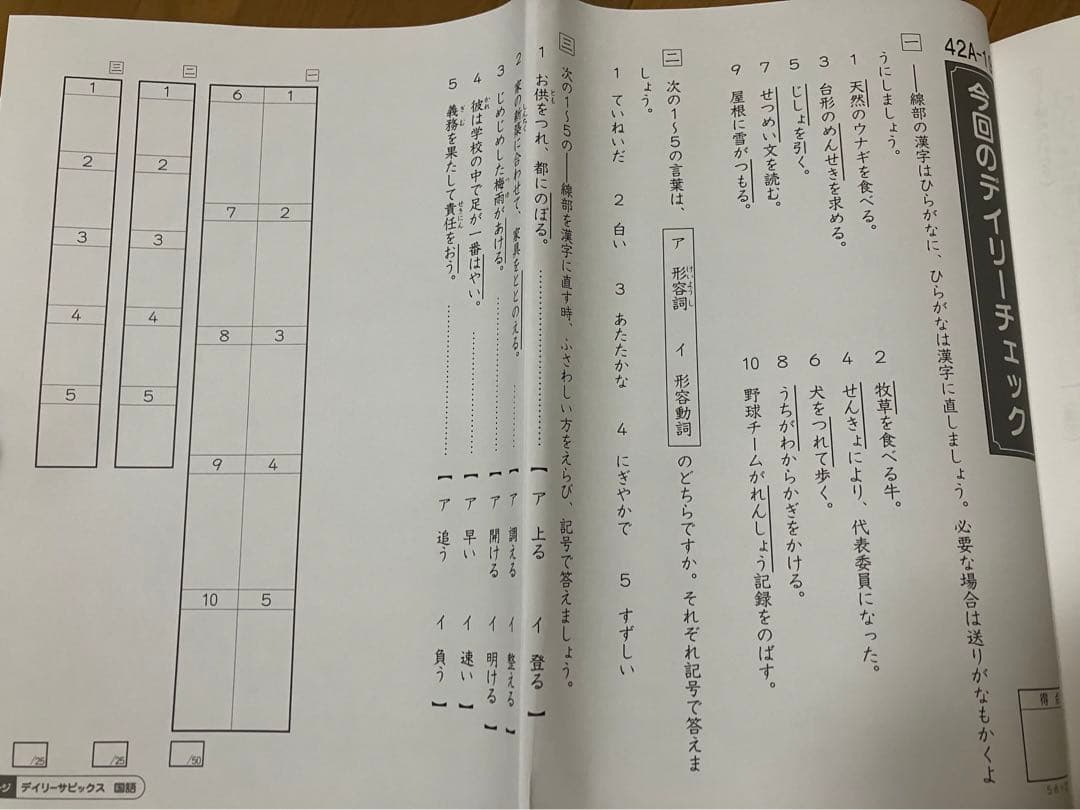 42A-1
今回のデイリーチェック
一 ――線部の漢字はひらがなに、ひらがなは漢字に直しましょう。必要な場合は送りがなもかくよ
うにしましょう。
1 天然のウナギを食べる。
2 牧草を食べる牛。
3 台形のめんせきを求める。
4 せんきょにより、代表委員になった。
5 じしょを引く。
6 犬をつれて歩く。
7 せつめい文を読む。
8 うちがわからかぎをかける。
9 屋根に雪がつもる。
10 野球チームがれんしょう記録をのばす。
二 次の1～5の言葉は、 ア 形容詞 イ 形容動詞 のどちらですか。それぞれ記号で答えま
けいようし
しょう。
1 ていねいだ 2 白い 3 あたたかな 4 にぎやかで 5 すずしい
三 次の1～5の――線部を漢字に直す時、ふさわしい方をえらび、記号で答えましょう。
1 お供をつれ、都にのぼる。……【 ア 上る イ 登る 】
とも
2 家の新築に合わせて、家具をととのえる。……【 ア 調える イ 整える 】
しんちく
3 じめじめした梅雨があける。……【 ア 開ける イ 明ける 】
つゆ
4 彼は学校の中で足が一番はやい。……【 ア 早い イ 速い 】
かれ
5 義務を果たして責任をおう。……【 ア 追う イ 負う 】
ぎむ せきにん
一
1
2
3
4
5
6
7
8
9
10
/50
二
1
2
3
4
5
/25
三
1
2
3
4
5
/25
デイリーサピックス 国語